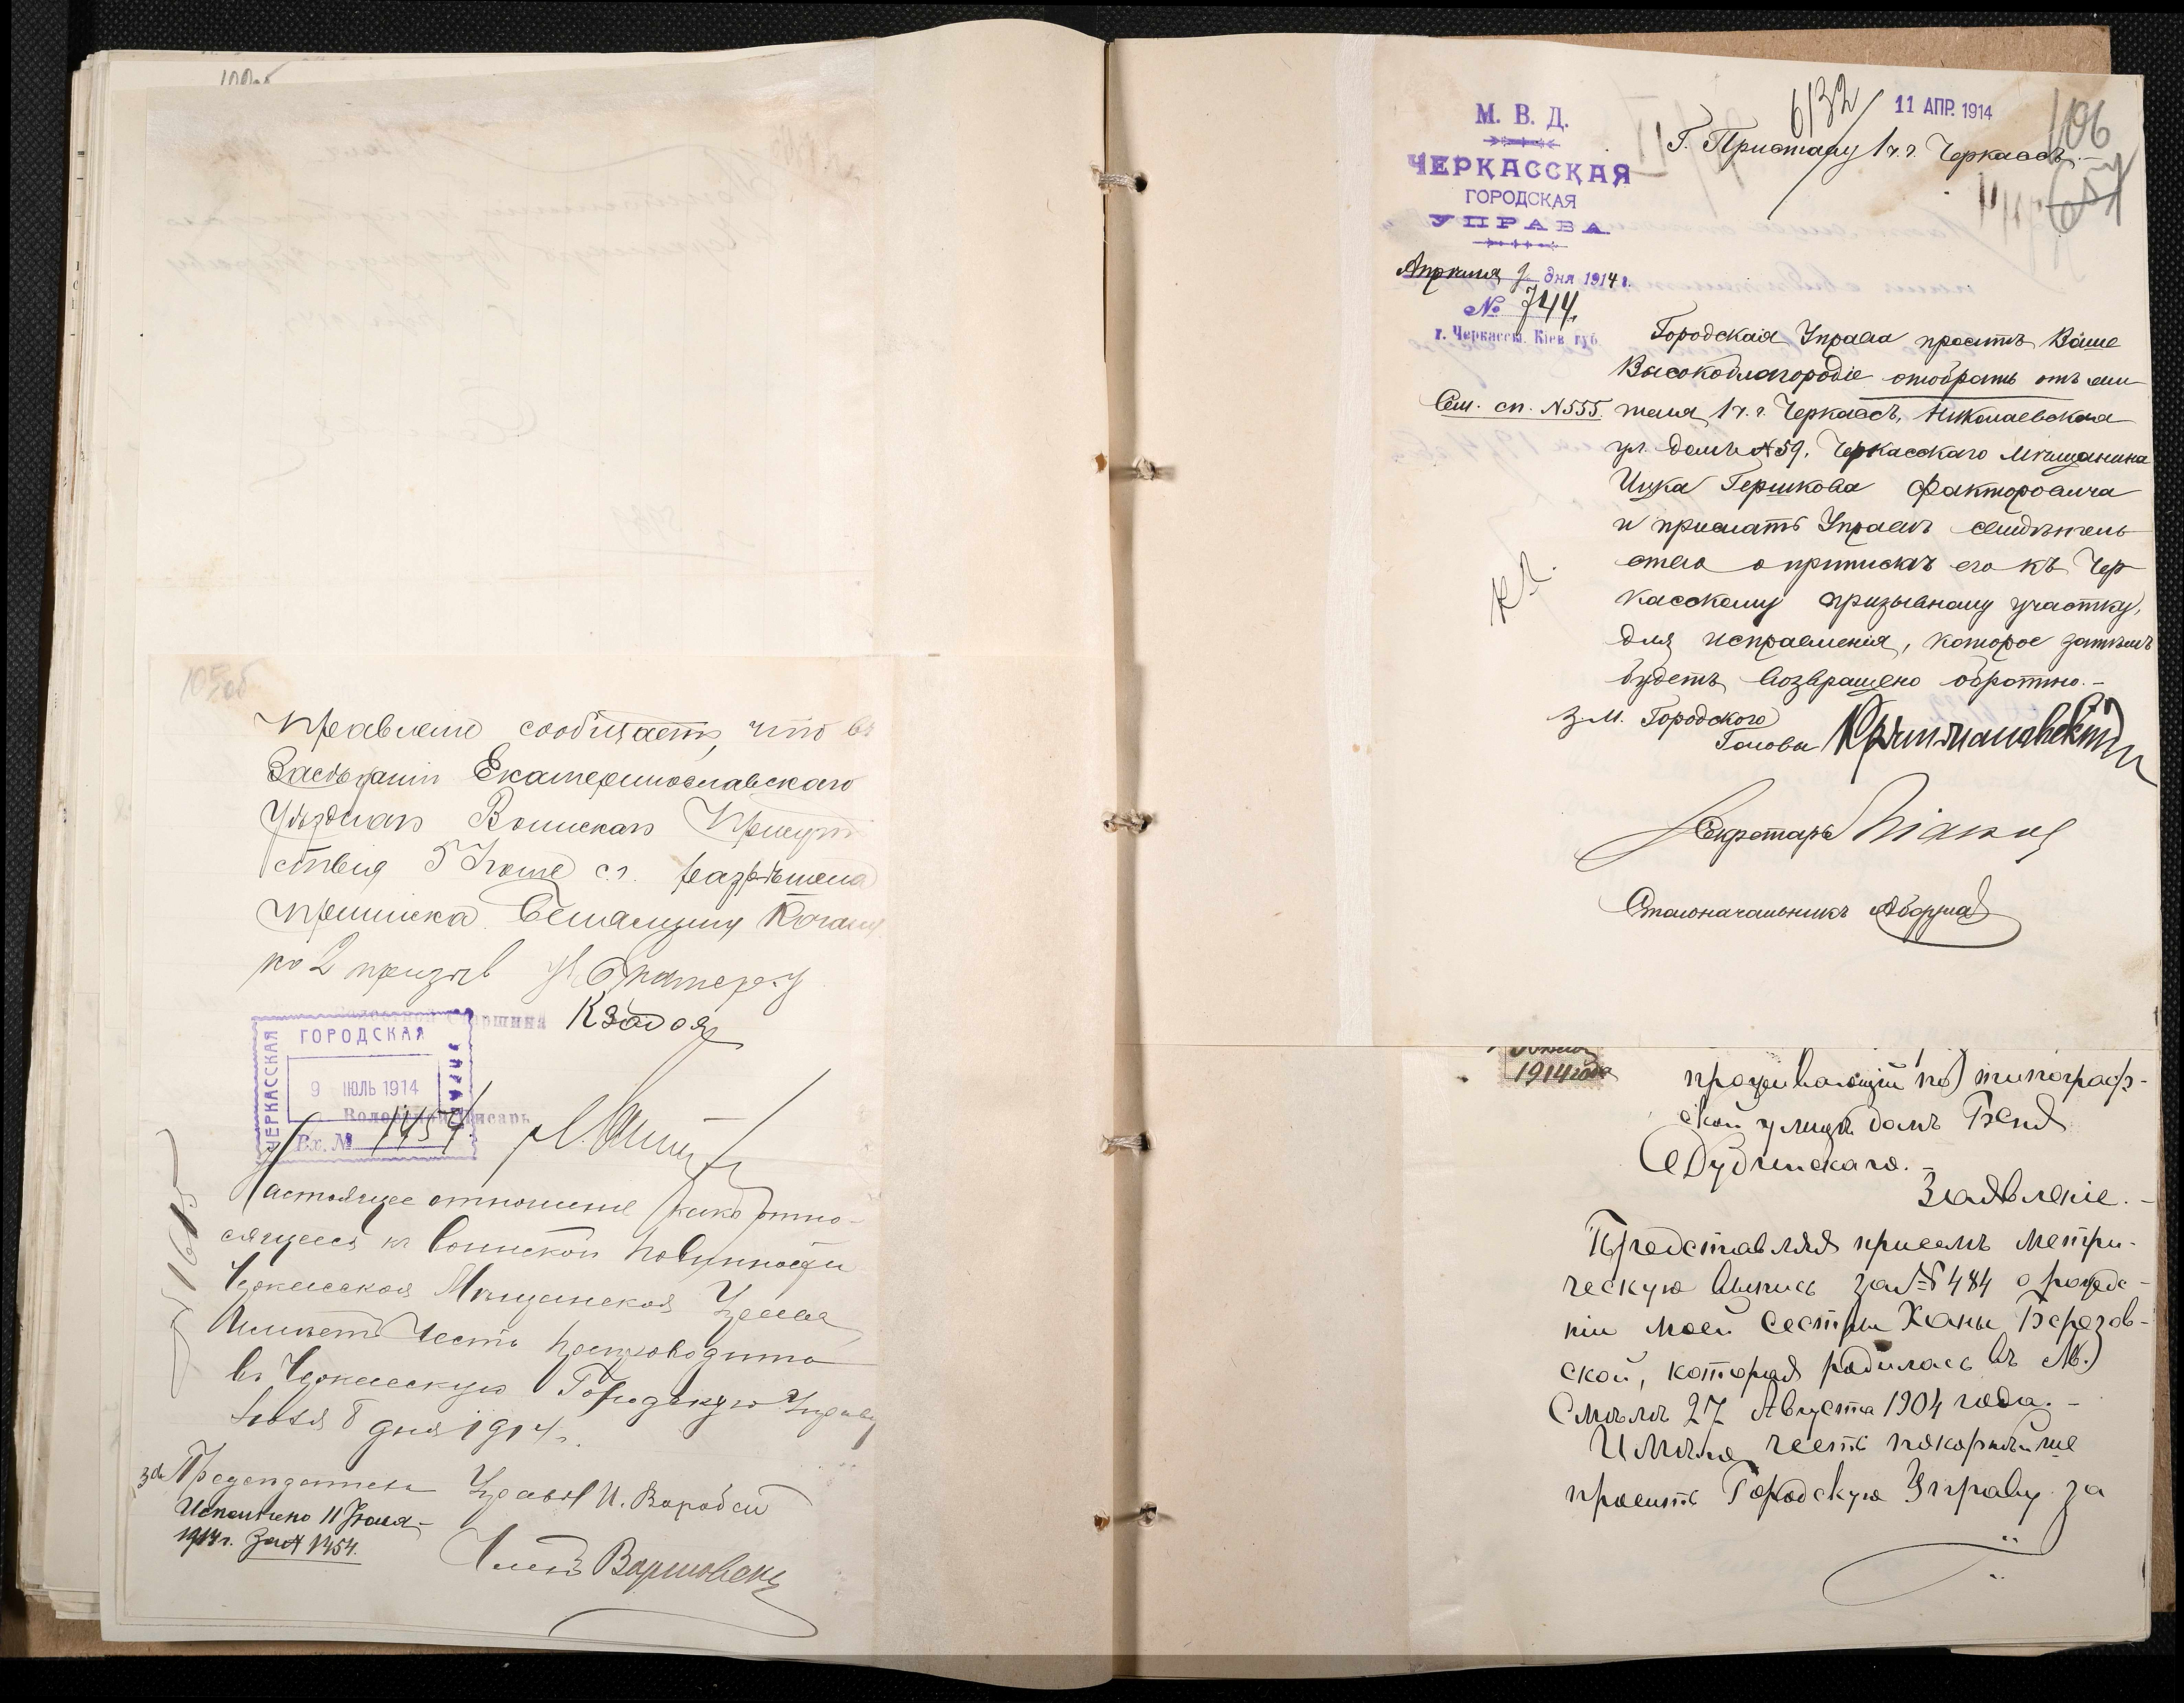 105об
Правленіе сообщаетъ, что въ
Засѣданіи Екатеринославскаго
Уѣзднаго Воинскаго Присут
ствія 5 Іюня с.г. разрѣшена
приписка
по 2 призыв. уч. Екатер. у
Волостной Старшина
ЧЕРКАССКАЯ
ГОРОДСКАЯ
УПРАВА
9 ІЮЛЬ 1914
Вх. № 1454
Волостной Писарь
Настоящее отношеніе, какъ отно-
сящееся къ воинской повинности
Черкасская Мѣщанская Управа
имѣетъ честь препроводить
въ Черкасскую Городскую Управу
Іюля 8 дня 1914 г.
№ 1615
за Предсѣдателя Управы И. Воробей
Исполнено 11 Іюля
1914 г. за № 1454.
Членъ
М. В. Д.
ЧЕРКАССКАЯ
ГОРОДСКАЯ
УПРАВА
Апрѣля 9 дня 1914 г.
№ 744.
г. Черкассы, Кіев. губ.
6132
11 АПР. 1914
106
Г. Приставу 1 ч. г. Черкассъ.-
Городская Управа проситъ Ваше
Высокоблагородіе отобрать отъ жи-
Сем. сп. № 555.
теля 1 ч. г. Черкассъ, Николаевская
ул. домъ № 59, Черкасскаго мѣщанина
Ицка Гершкова Факторовича
и прислать Управѣ свидѣтель
ство о припискѣ его къ Чер
касскому призывному участку,
для исправленія, которое затѣмъ
будетъ возвращено обратно.-
З.м. Городского
Головы
Секретарь
Столоначальникъ
1914 года
проживающій по типограф-
ской улицѣ домъ Бенд
Дудчинскаго.-
Заявленіе.-
Представляя присемъ метри-
ческую выпись за № 484 о рожде-
ніи моей сестры Ханы Березов-
ской, которая родилась въ М.
Смѣлѣ 27 Августа 1904 года.-
Имѣю честь покорнѣйше
просить Городскую Управу за